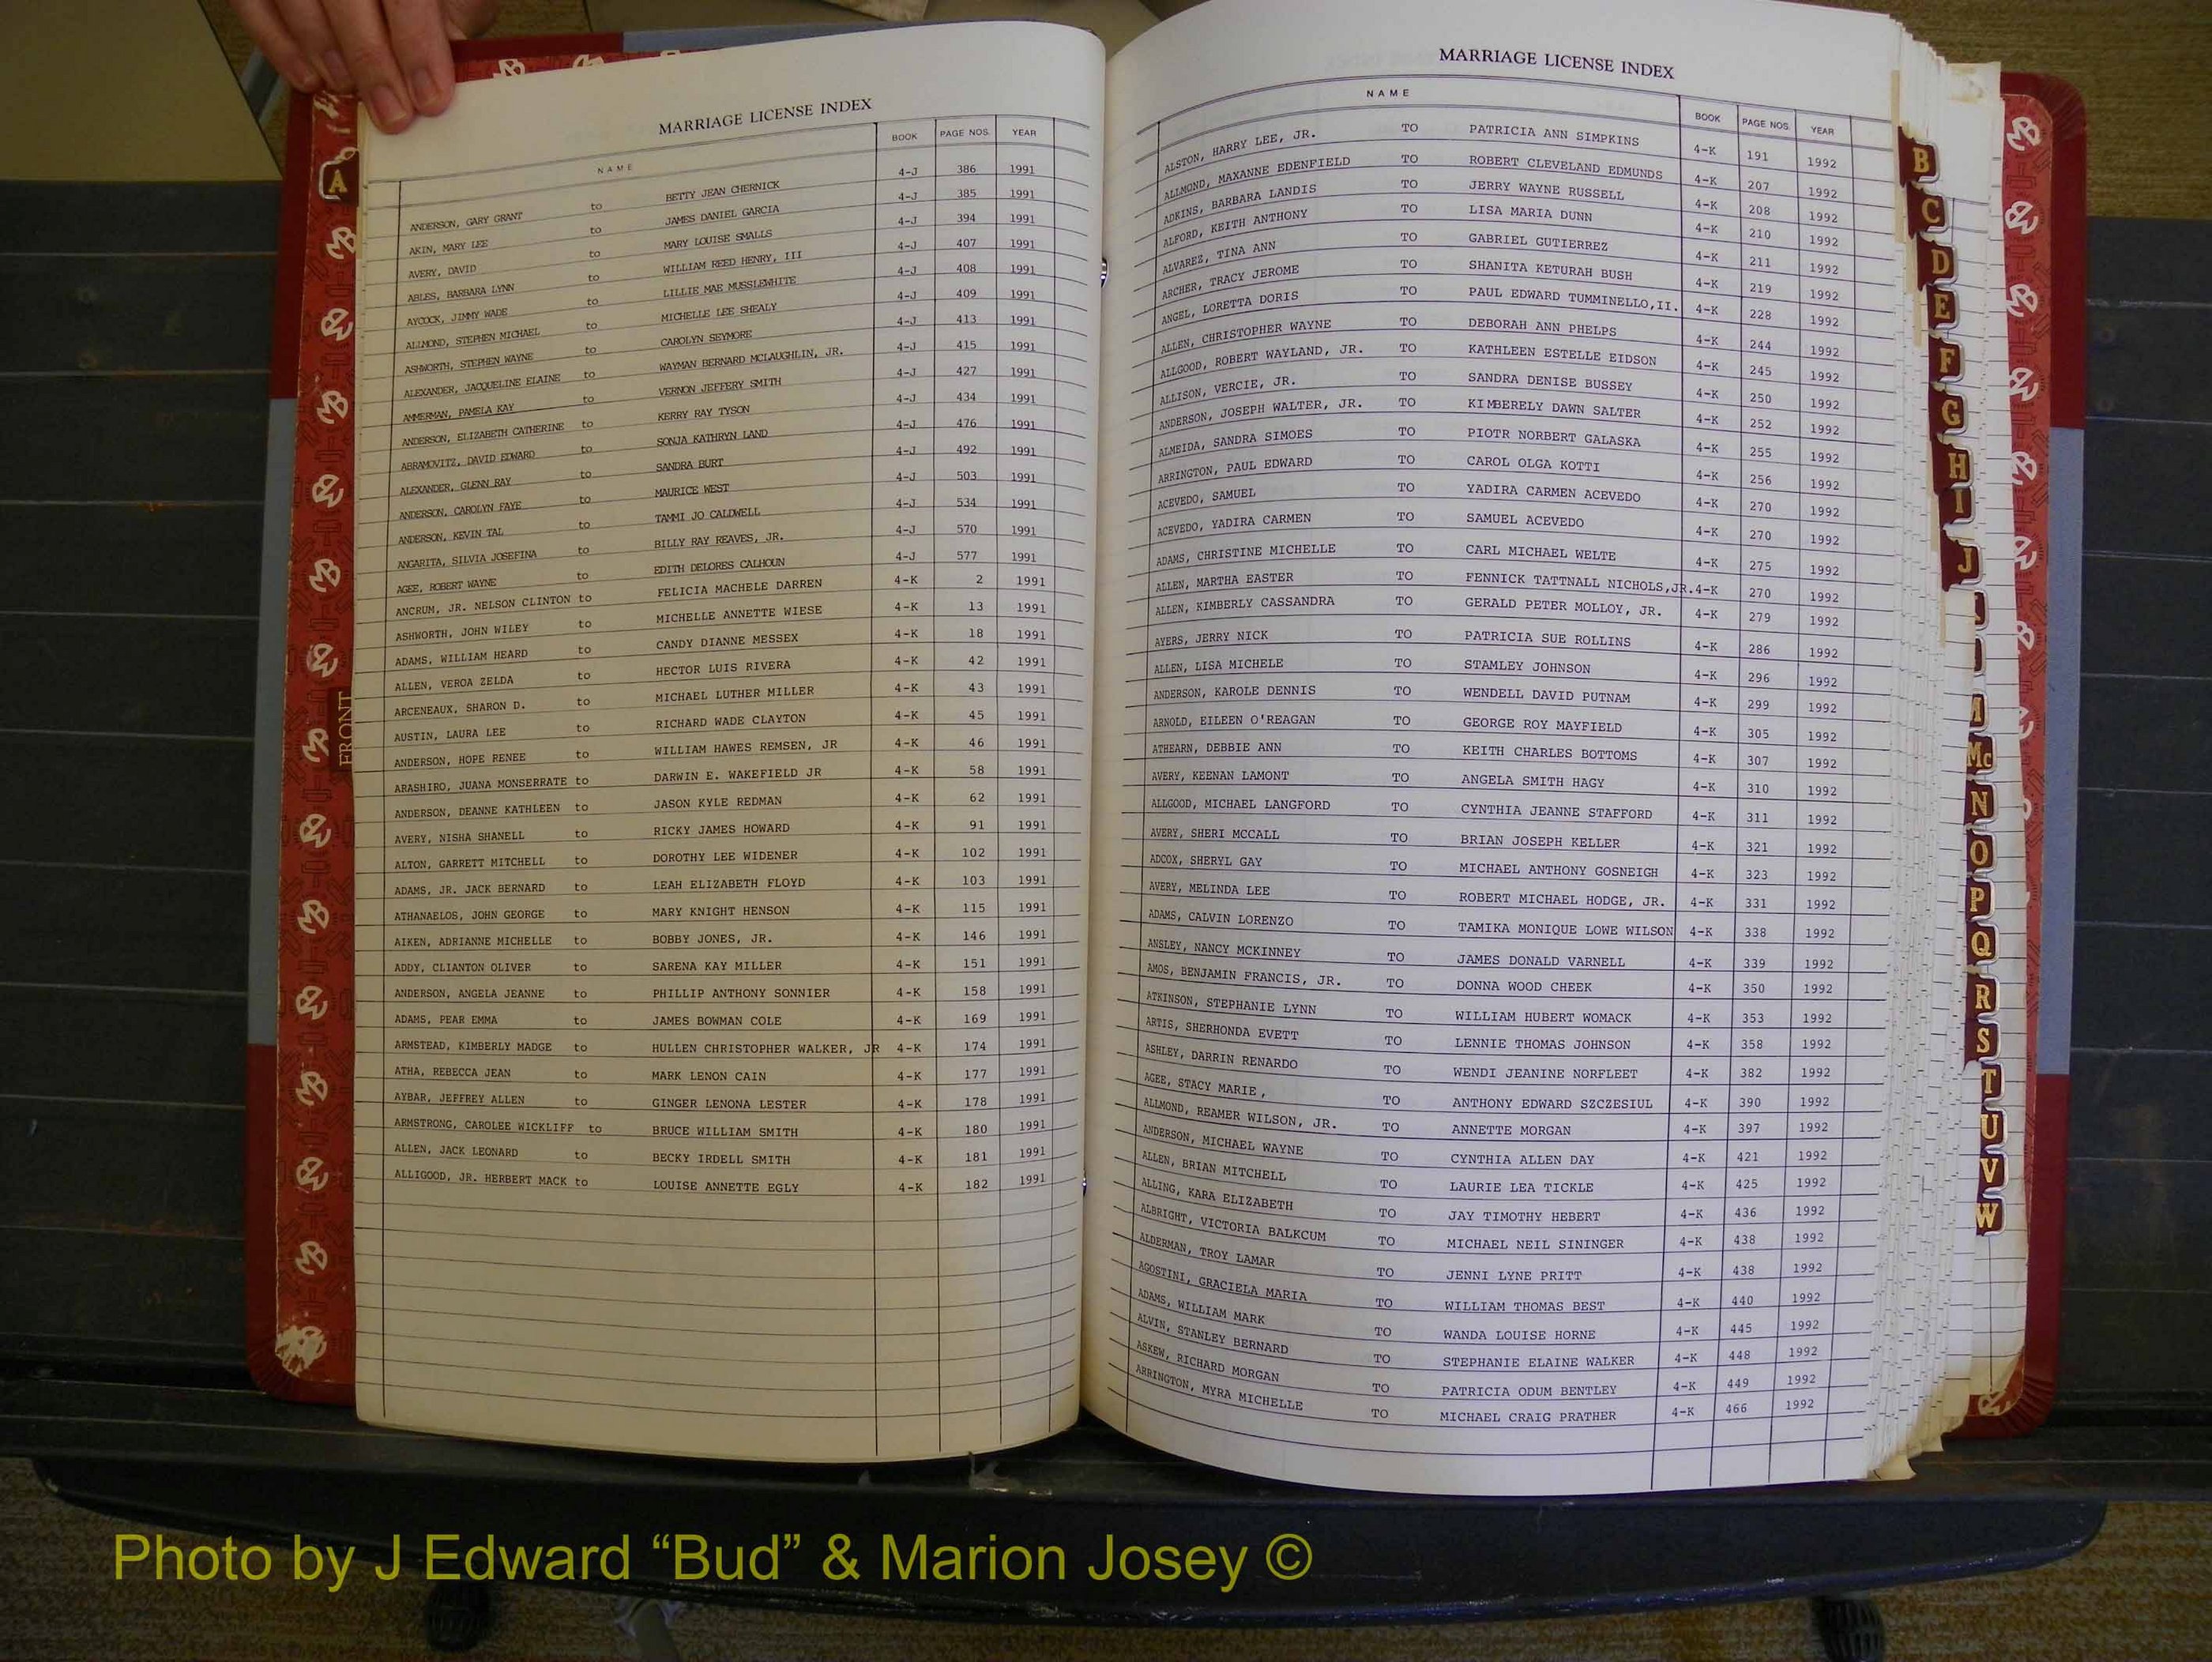 MARRIAGE LICENSE INDEX
NAME BOOK PAGE NOS. YEAR
ANDERSON, GARY GRANT to BETTY JEAN CHERNICK 4-J 386 1991
AKIN, MARY LEE to JAMES DANIEL GARCIA 4-J 385 1991
AVERY, DAVID to MARY LOUISE SMALLS 4-J 394 1991
ABLES, BARBARA LYNN to WILLIAM REED HENRY, III 4-J 407 1991
AYCOCK, JIMMY WADE to LILLIE MAE MUSSLEWHITE 4-J 408 1991
ALLMOND, STEPHEN MICHAEL to MICHELLE LEE SHEALY 4-J 409 1991
ASHWORTH, STEPHEN WAYNE to CAROLYN SEYMORE 4-J 413 1991
ALEXANDER, JACQUELINE ELAINE to WAYMAN BERNARD MCLAUGHLIN, JR. 4-J 415 1991
AMMERMAN, PAMELA KAY to VERNON JEFFERY SMITH 4-J 427 1991
ANDERSON, ELIZABETH CATHERINE to KERRY RAY TYSON 4-J 434 1991
ABRAMOVITZ, DAVID EDWARD to SONJA KATHRYN LAND 4-J 476 1991
ALEXANDER, GLENN RAY to SANDRA BURT 4-J 492 1991
ANDERSON, CAROLYN FAYE to MAURICE WEST 4-J 503 1991
ANDERSON, KEVIN TAL to TAMMI JO CALDWELL 4-J 534 1991
ANGARITA, SILVIA JOSEFINA to BILLY RAY REAVES, JR. 4-J 570 1991
AGEE, ROBERT WAYNE to EDITH DELORES CALHOUN 4-J 577 1991
ANCRUM, JR. NELSON CLINTON to FELICIA MACHELE DARREN 4-K 2 1991
ASHWORTH, JOHN WILEY to MICHELLE ANNETTE WIESE 4-K 13 1991
ADAMS, WILLIAM HEARD to CANDY DIANNE MESSEX 4-K 18 1991
ALLEN, VEROA ZELDA to HECTOR LUIS RIVERA 4-K 42 1991
ARCENEAUX, SHARON D. to MICHAEL LUTHER MILLER 4-K 43 1991
AUSTIN, LAURA LEE to RICHARD WADE CLAYTON 4-K 45 1991
ANDERSON, HOPE RENEE to WILLIAM HAWES REMSEN, JR 4-K 46 1991
ARASHIRO, JUANA MONSERRATE to DARWIN E. WAKEFIELD JR 4-K 58 1991
ANDERSON, DEANNE KATHLEEN to JASON KYLE REDMAN 4-K 62 1991
AVERY, NISHA SHANELL to RICKY JAMES HOWARD 4-K 91 1991
ALTON, GARRETT MITCHELL to DOROTHY LEE WIDENER 4-K 102 1991
ADAMS, JR. JACK BERNARD to LEAH ELIZABETH FLOYD 4-K 103 1991
ATHANAELOS, JOHN GEORGE to MARY KNIGHT HENSON 4-K 115 1991
AIKEN, ADRIANNE MICHELLE to BOBBY JONES, JR. 4-K 146 1991
ADDY, CLIANTON OLIVER to SARENA KAY MILLER 4-K 151 1991
ANDERSON, ANGELA JEANNE to PHILLIP ANTHONY SONNIER 4-K 158 1991
ADAMS, PEAR EMMA to JAMES BOWMAN COLE 4-K 169 1991
ARMSTEAD, KIMBERLY MADGE to HULLEN CHRISTOPHER WALKER, JR 4-K 174 1991
ATHA, REBECCA JEAN to MARK LENON CAIN 4-K 177 1991
AYBAR, JEFFREY ALLEN to GINGER LENONA LESTER 4-K 178 1991
ARMSTRONG, CAROLEE WICKLIFF to BRUCE WILLIAM SMITH 4-K 180 1991
ALLEN, JACK LEONARD to BECKY IRDELL SMITH 4-K 181 1991
ALLIGOOD, JR. HERBERT MACK to LOUISE ANNETTE EGLY 4-K 182 1991
A
FRONT
MARRIAGE LICENSE INDEX
NAME BOOK PAGE NOS. YEAR
ALSTON, HARRY LEE, JR. TO PATRICIA ANN SIMPKINS 4-K 191 1992
ALLMOND, MAXANNE EDENFIELD TO ROBERT CLEVELAND EDMUNDS 4-K 207 1992
ADKINS, BARBARA LANDIS TO JERRY WAYNE RUSSELL 4-K 208 1992
ALFORD, KEITH ANTHONY TO LISA MARIA DUNN 4-K 210 1992
ALVAREZ, TINA ANN TO GABRIEL GUTIERREZ 4-K 211 1992
ARCHER, TRACY JEROME TO SHANITA KETURAH BUSH 4-K 219 1992
ANGEL, LORETTA DORIS TO PAUL EDWARD TUMMINELLO,II. 4-K 228 1992
ALLEN, CHRISTOPHER WAYNE TO DEBORAH ANN PHELPS 4-K 244 1992
ALLGOOD, ROBERT WAYLAND, JR. TO KATHLEEN ESTELLE EIDSON 4-K 245 1992
ALLISON, VERCIE, JR. TO SANDRA DENISE BUSSEY 4-K 250 1992
ANDERSON, JOSEPH WALTER, JR. TO KIMBERELY DAWN SALTER 4-K 252 1992
ALMEIDA, SANDRA SIMOES TO PIOTR NORBERT GALASKA 4-K 255 1992
ARRINGTON, PAUL EDWARD TO CAROL OLGA KOTTI 4-K 256 1992
ACEVEDO, SAMUEL TO YADIRA CARMEN ACEVEDO 4-K 270 1992
ACEVEDO, YADIRA CARMEN TO SAMUEL ACEVEDO 4-K 270 1992
ADAMS, CHRISTINE MICHELLE TO CARL MICHAEL WELTE 4-K 275 1992
ALLEN, MARTHA EASTER TO FENNICK TATTNALL NICHOLS,JR. 4-K 270 1992
ALLEN, KIMBERLY CASSANDRA TO GERALD PETER MOLLOY, JR. 4-K 279 1992
AYERS, JERRY NICK TO PATRICIA SUE ROLLINS 4-K 286 1992
ALLEN, LISA MICHELE TO STAMLEY JOHNSON 4-K 296 1992
ANDERSON, KAROLE DENNIS TO WENDELL DAVID PUTNAM 4-K 299 1992
ARNOLD, EILEEN O'REAGAN TO GEORGE ROY MAYFIELD 4-K 305 1992
ATHEARN, DEBBIE ANN TO KEITH CHARLES BOTTOMS 4-K 307 1992
AVERY, KEENAN LAMONT TO ANGELA SMITH HAGY 4-K 310 1992
ALLGOOD, MICHAEL LANGFORD TO CYNTHIA JEANNE STAFFORD 4-K 311 1992
AVERY, SHERI MCCALL TO BRIAN JOSEPH KELLER 4-K 321 1992
ADCOX, SHERYL GAY TO MICHAEL ANTHONY GOSNEIGH 4-K 323 1992
AVERY, MELINDA LEE TO ROBERT MICHAEL HODGE, JR. 4-K 331 1992
ADAMS, CALVIN LORENZO TO TAMIKA MONIQUE LOWE WILSON 4-K 338 1992
ANSLEY, NANCY MCKINNEY TO JAMES DONALD VARNELL 4-K 339 1992
AMOS, BENJAMIN FRANCIS, JR. TO DONNA WOOD CHEEK 4-K 350 1992
ATKINSON, STEPHANIE LYNN TO WILLIAM HUBERT WOMACK 4-K 353 1992
ARTIS, SHERHONDA EVETT TO LENNIE THOMAS JOHNSON 4-K 358 1992
ASHLEY, DARRIN RENARDO TO WENDI JEANINE NORFLEET 4-K 382 1992
AGEE, STACY MARIE, TO ANTHONY EDWARD SZCZESIUL 4-K 390 1992
ALLMOND, REAMER WILSON, JR. TO ANNETTE MORGAN 4-K 397 1992
ANDERSON, MICHAEL WAYNE TO CYNTHIA ALLEN DAY 4-K 421 1992
ALLEN, BRIAN MITCHELL TO LAURIE LEA TICKLE 4-K 425 1992
ALLING, KARA ELIZABETH TO JAY TIMOTHY HEBERT 4-K 436 1992
ALBRIGHT, VICTORIA BALKCUM TO MICHAEL NEIL SININGER 4-K 438 1992
ALDERMAN, TROY LAMAR TO JENNI LYNE PRITT 4-K 438 1992
AGOSTINI, GRACIELA MARIA TO WILLIAM THOMAS BEST 4-K 440 1992
ADAMS, WILLIAM MARK TO WANDA LOUISE HORNE 4-K 445 1992
ALVIN, STANLEY BERNARD TO STEPHANIE ELAINE WALKER 4-K 448 1992
ASKEW, RICHARD MORGAN TO PATRICIA ODUM BENTLEY 4-K 449 1992
ARRINGTON, MYRA MICHELLE TO MICHAEL CRAIG PRATHER 4-K 466 1992
B
C
D
E
F
G
H
I
J
Mc
N
O
P
Q
R
S
T
U
V
W
Photo by J Edward “Bud” & Marion Josey ©